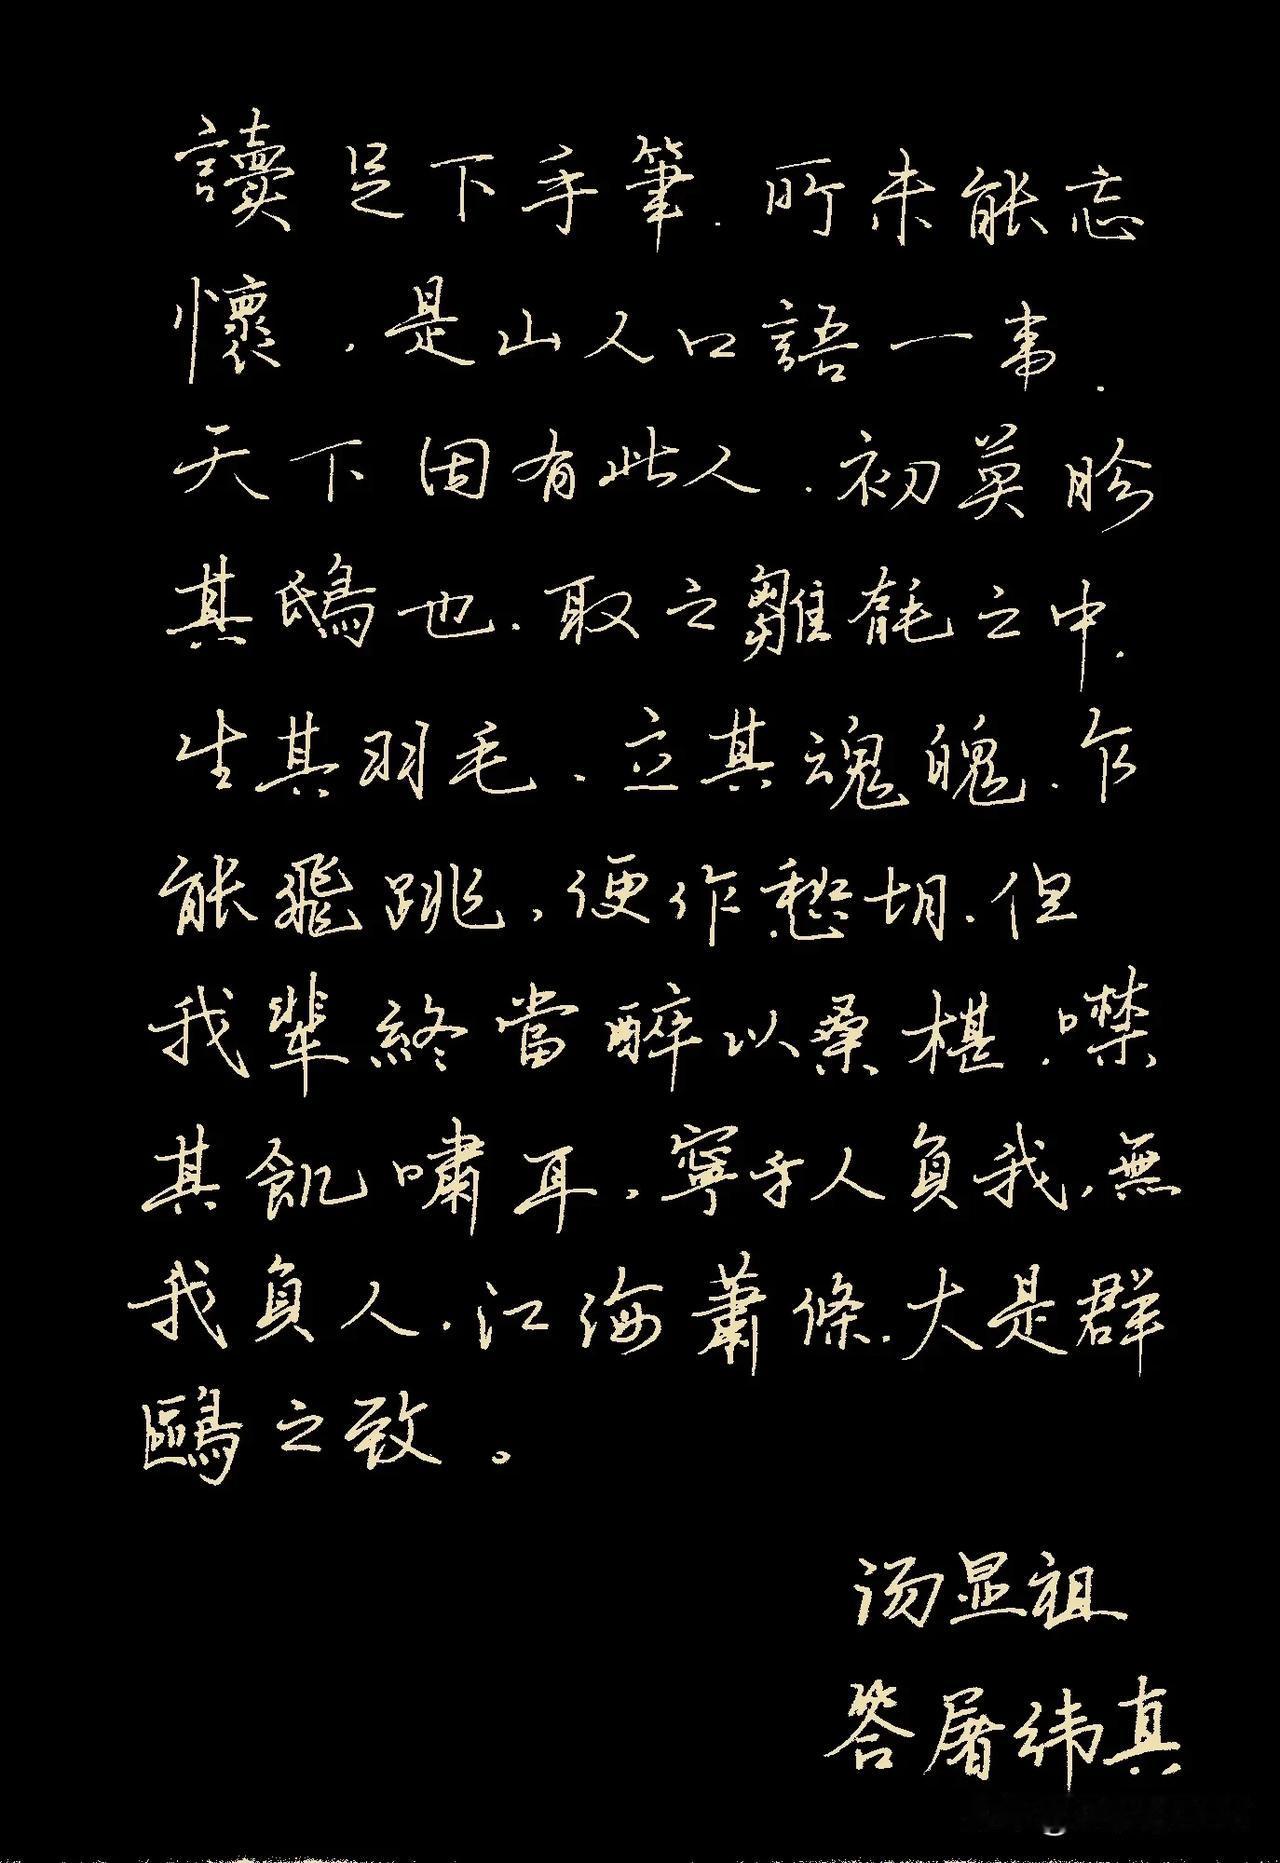 讀足下手筆.所未能忘
懷,是山人口語一事.
天下固有此人.初莫眕
其鴟也.取之雛毻之中.
生其羽毛、立其魂魄.乍
能飛跳,便作愁胡.但
我輩終當醉以桑椹.噤
其飢嘯耳,寧乎人負我,無
我負人.江海蕭條.大是群
鷗之致。
汤显祖
答屠纬真